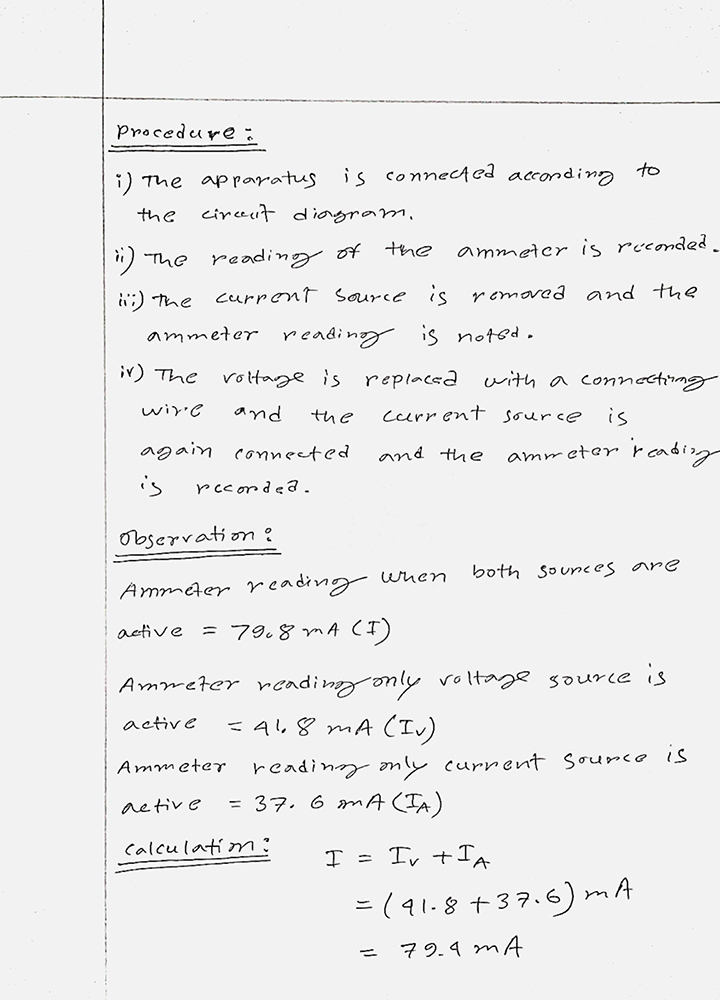 Procedure:
i) The apparatus is connected according to
the circuit diagram.
ii) The reading of the ammeter is recorded.
iii) the current source is removed and the
ammeter reading is noted.
iv) The voltage is replaced with a connecting
wire and the current source is
again connected and the ammeter reading
is recorded.
Observation:
Ammeter reading when both sources are
active = 79.8 mA (I)
Ammeter reading only voltage source is
active = 41.8 mA (Iv)
Ammeter reading only current source is
active = 37.6 mA (IA)
Calculation: I = Iv + IA
= (41.8 + 37.6) mA
= 79.4 mA